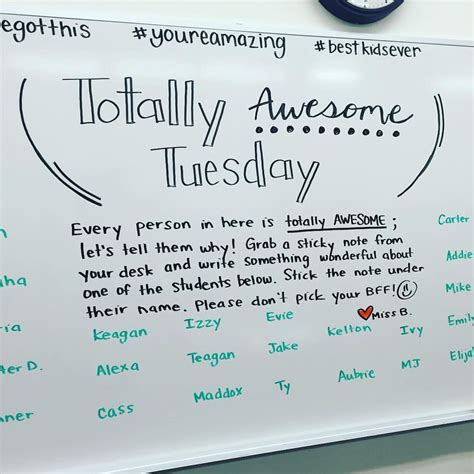 egotthis #youreamazing #bestkidsever
Totally Awesome
Tuesday
Every person in here is totally AWESOME;
let's tell them why! Grab a sticky note from
your desk and write something wonderful about
one of the students below. Stick the note under
their name. Please don't pick your BFF!
Miss B.
Carter
Addie
Mike
Keagan Izzy Evie Kelton Ivy Emily
er D. Alexa Teagan Jake Aubrie MJ Elija
ner Cass Maddox Ty